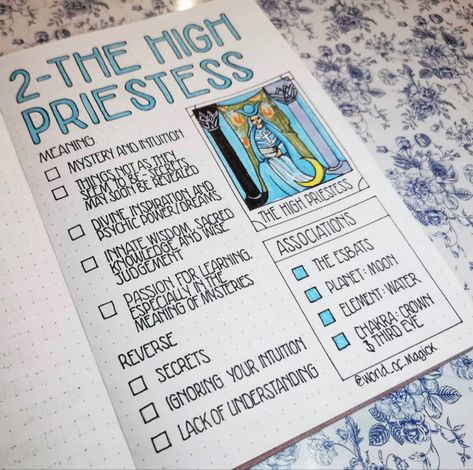 2-THE HIGH
PRIESTESS
MEANING
MYSTERY AND INTUITION
THINGS NOT AS THEY
SEEM TO BE - SECRETS
MAY SOON BE REVEALED
DIVINE INSPIRATION AND
PSYCHIC POWER/DREAMS
INNATE WISDOM, SACRED
KNOWLEDGE AND WISE
JUDGEMENT
PASSION FOR LEARNING,
ESPECIALLY IN THE
MEANING OF MYSTERIES
REVERSE
SECRETS
IGNORING YOUR INTUITION
LACK OF UNDERSTANDING
THE HIGH PRIESTESS
ASSOCIATIONS
THE ESBATS
PLANET: MOON
ELEMENT: WATER
CHAKRA: CROWN
& THIRD EYE
@world_of_magick